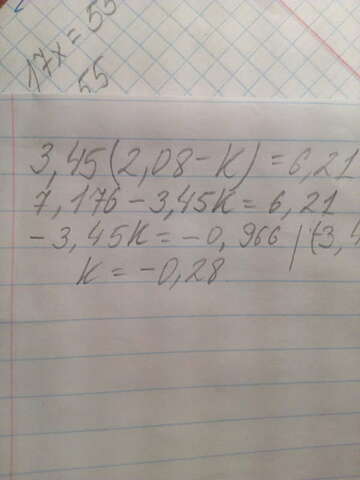 17x = 55
55
3,45(2,08 - K) = 6,21
7,176 - 3,45K = 6,21
- 3,45K = - 0,966 | (3,4
K = - 0,28